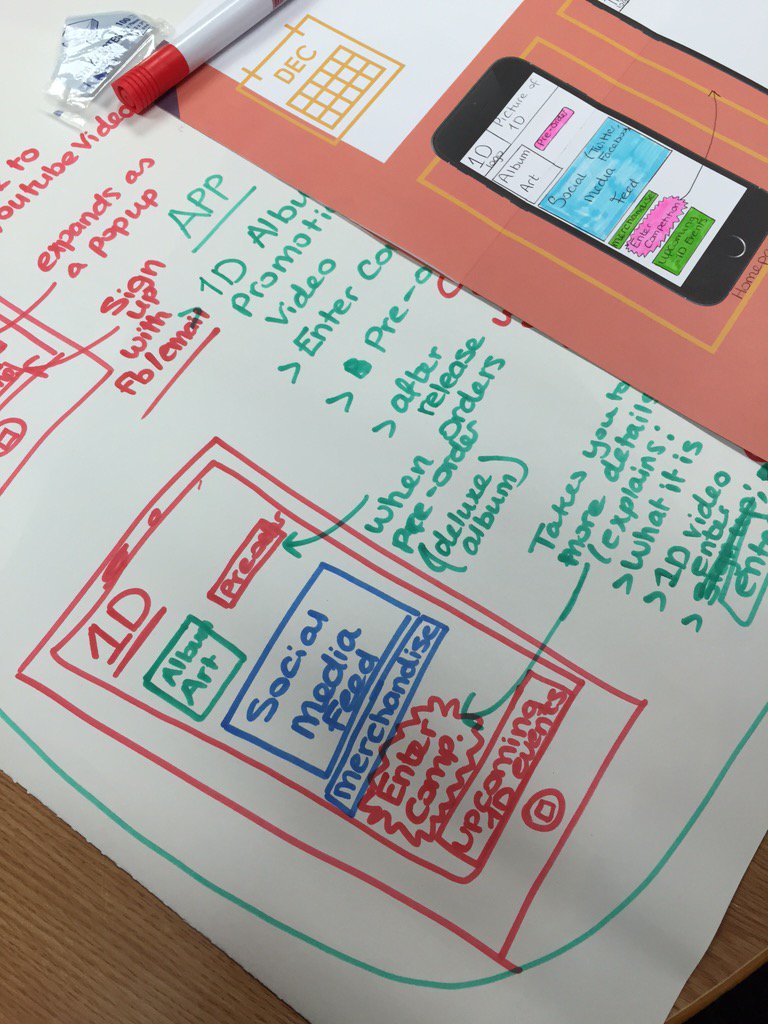 DEC
1D
logo
Picture of
1D
Pre-order
Album
Art
Social
Media
Feed
(Twitter
Facebook
merchandise
Enter
Competition
Upcoming
1D Events
to
Youtube Video
expands as
a popup
Sign
up
with
Fb/email
APP
1D
Promoti
Video
> Enter Co
> Pre-o
> after
release
orders
When
Pre-order
(deluxe
album)
Takes you to
more details
(explains:
> What it is
> 1D video
> Enter
1D
Preorder
Album
Art
Social
Media
Feed
merchandise
Enter
Comp.
upcoming
1D events